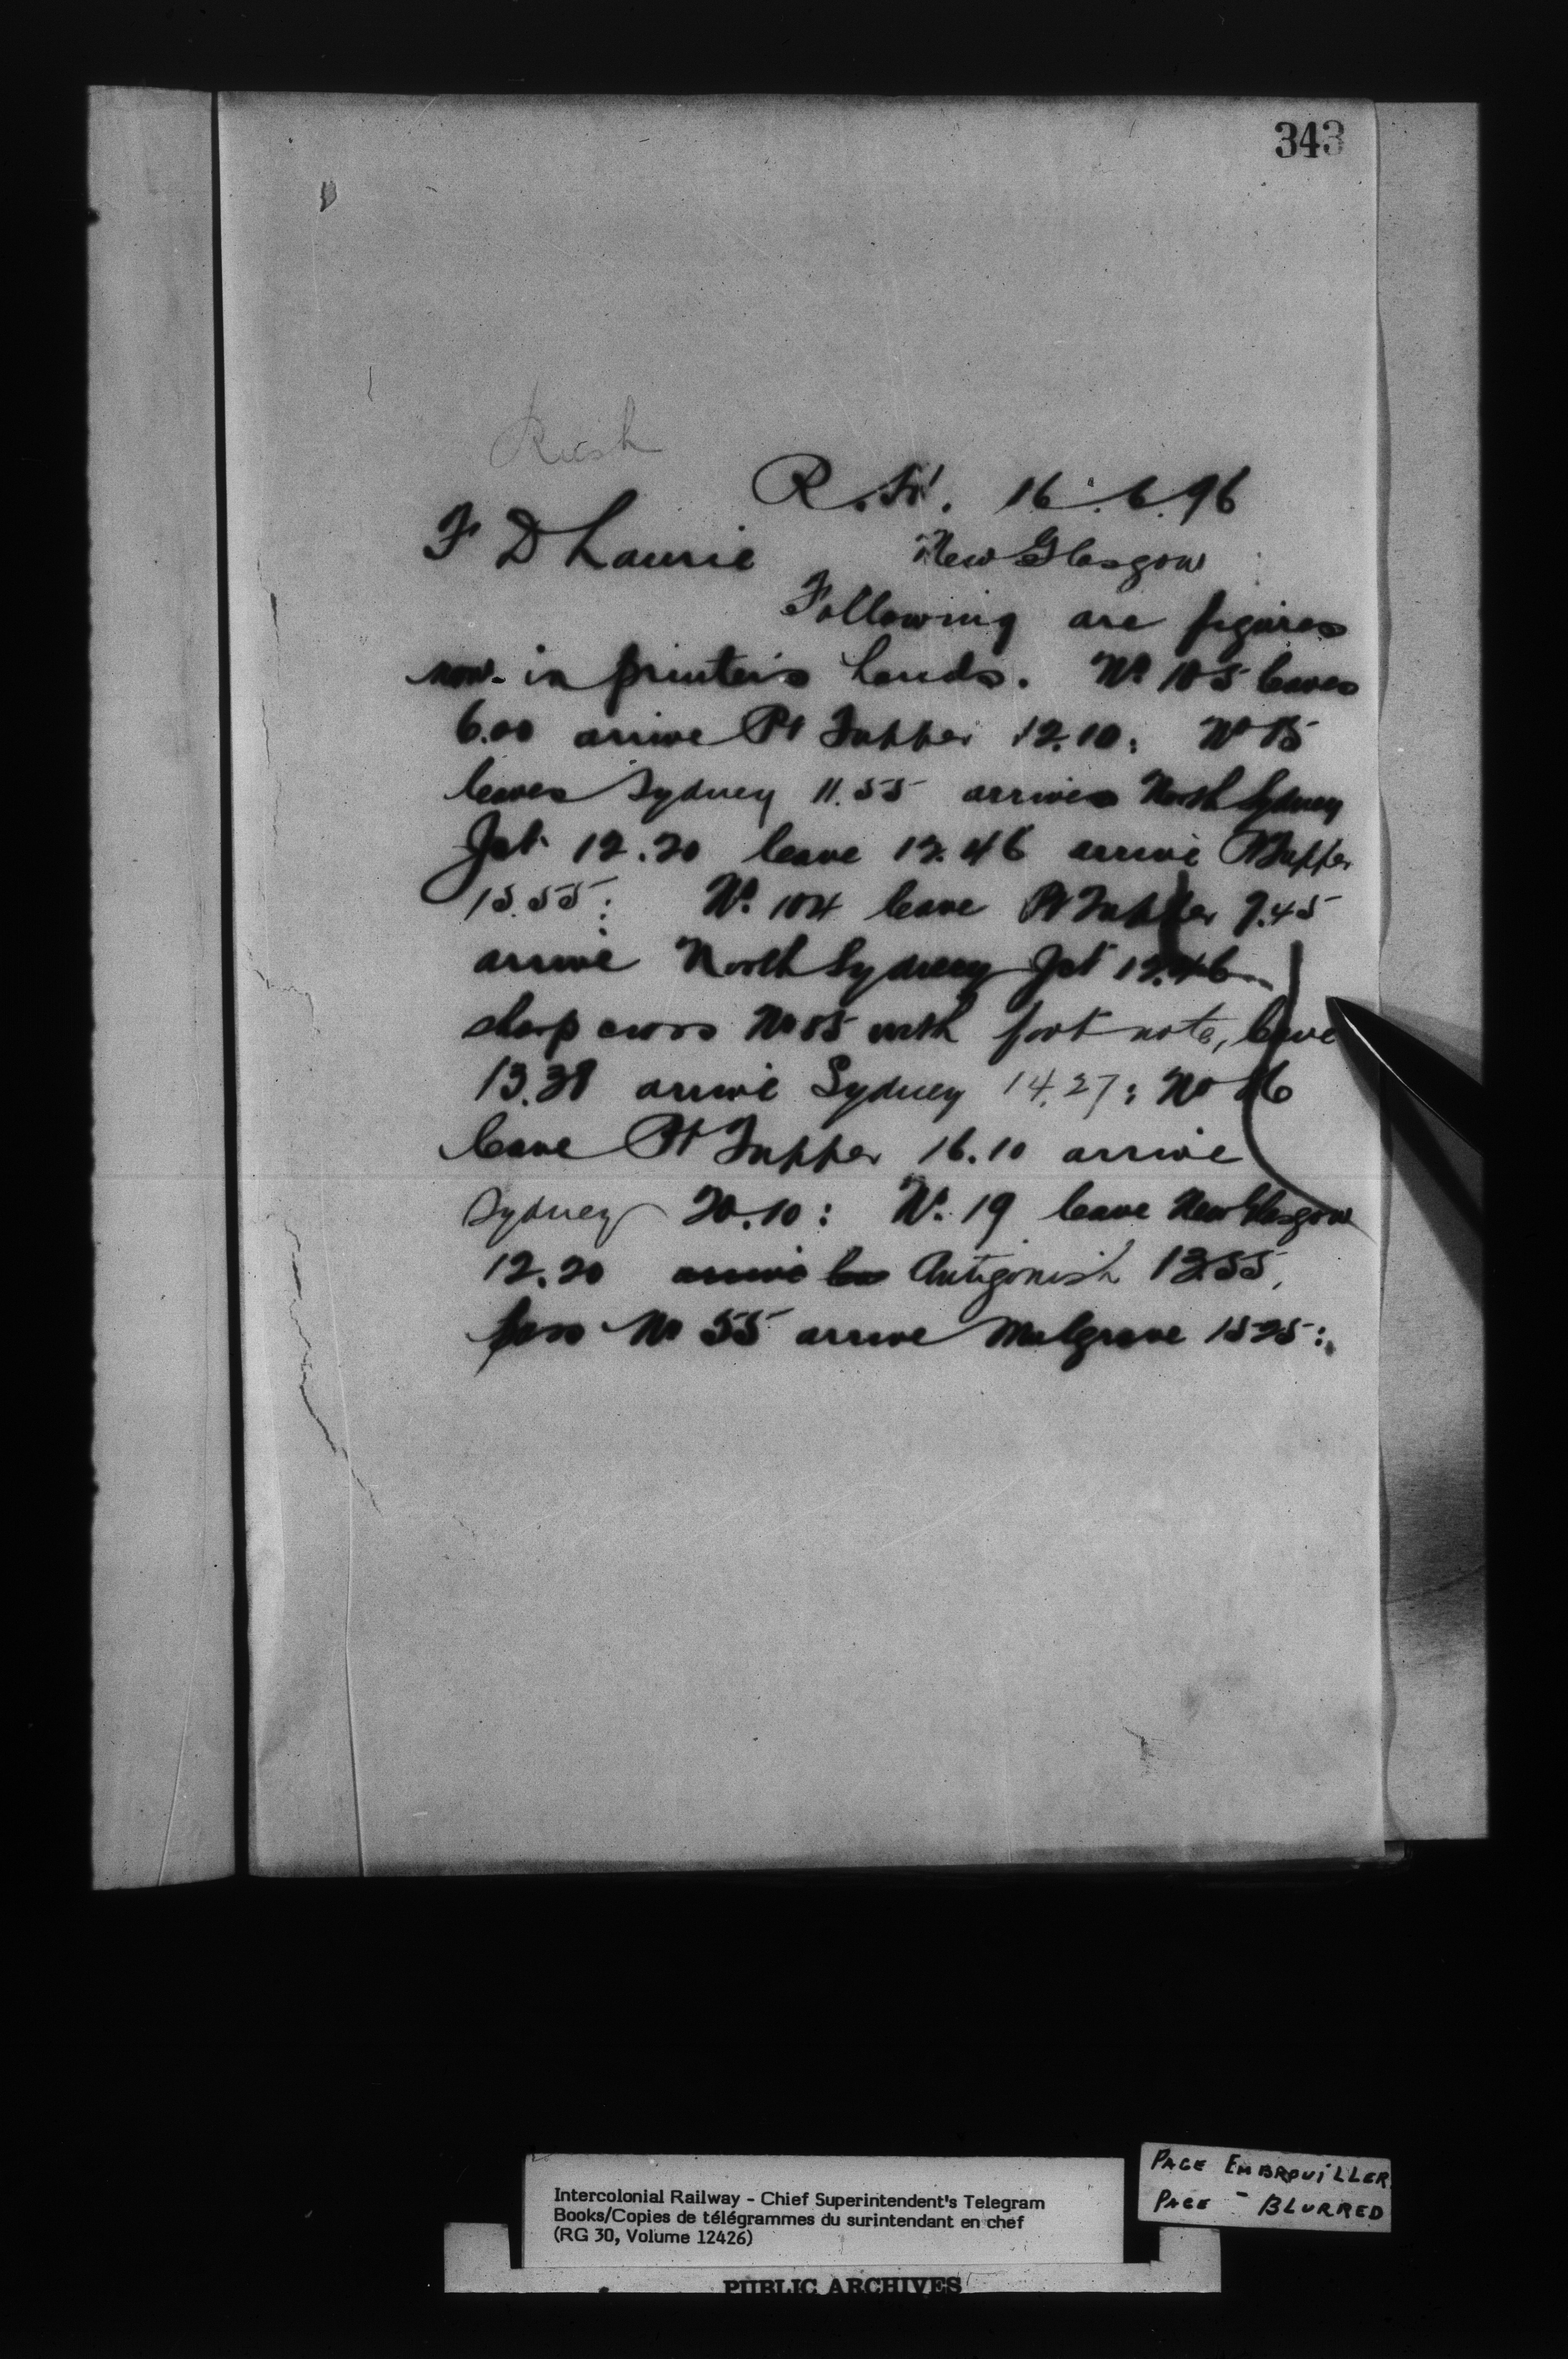 343
Rush
R. W. 16.6.96
F D Laurie New Glasgow
Following are figures
now in printer's hands. No 105 leaves
6.00 arrive Pt Tupper 12.10:
leaves Sydney 11.55 arrives North Sydney
Jct 12.20 leave 12.46 arrive Pt Tupper
15.55: No. 104 leave Pt Tupper 7.45
arrive North Sydney Jct 12.46
sharp cross No 85 with foot note, leave
13.38 arrive Sydney 14.27: No 86
leave Pt Tupper 16.10 arrive
Sydney 20.10: No. 19 leave New Glasgow
12.20 arrive Antigonish 13.55,
pass No 55 arrive Mulgrave 15 25:
Intercolonial Railway - Chief Superintendent's Telegram
Books/Copies de télégrammes du surintendant en chef
(RG 30, Volume 12426)
PAGE EMBROUILLER
PAGE - BLURRED
PUBLIC ARCHIVES